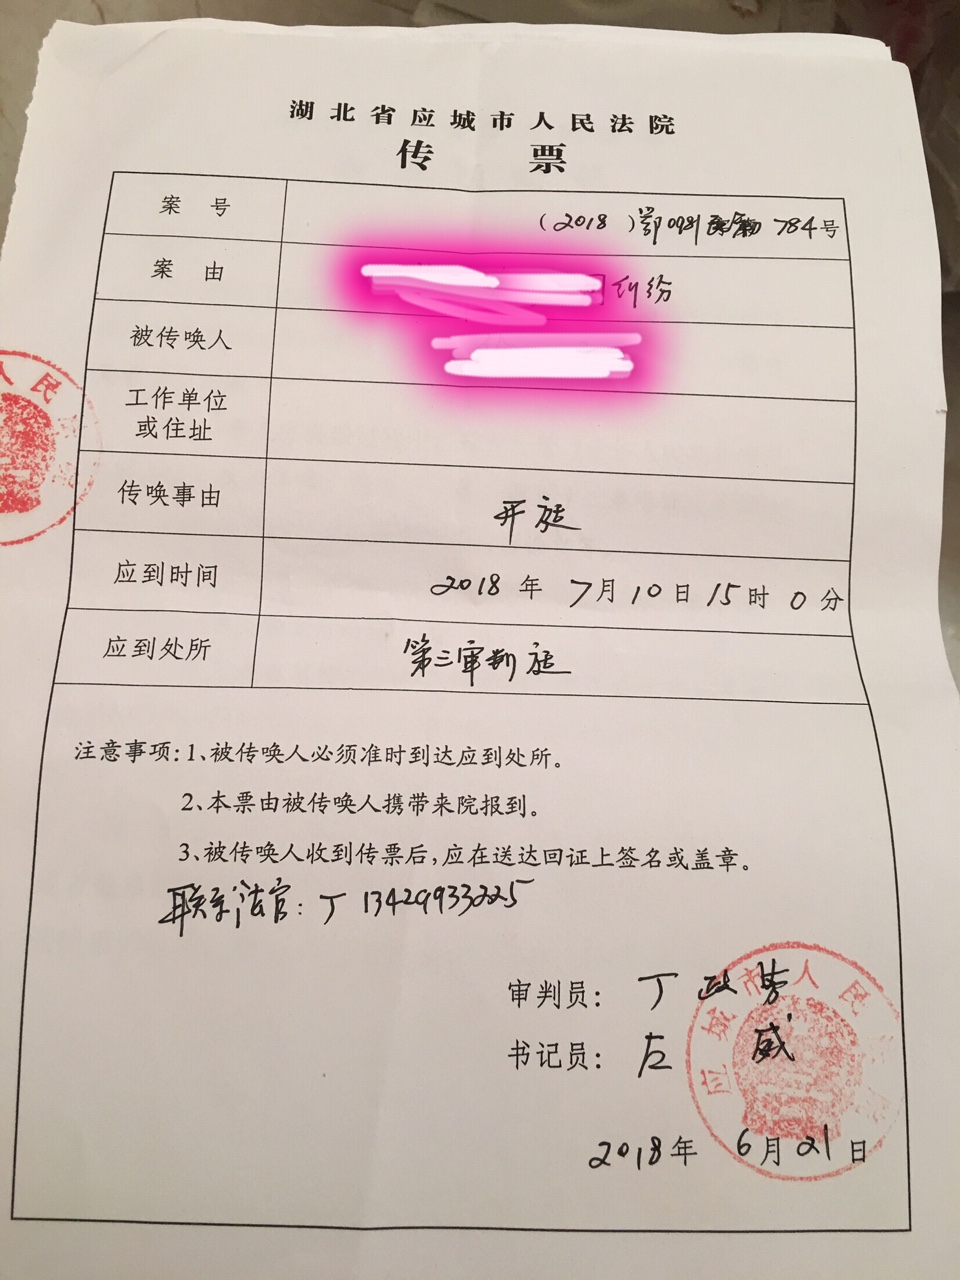 湖北省应城市人民法院
传 票
案 号 （2018 ）鄂0981 784号
案 由 纠纷
被传唤人
工作单位
或住址
传唤事由 开庭
应到时间 2018年 7月10日15时 0分
应到处所 第三审判庭
注意事项：1、被传唤人必须准时到达应到处所。
2、本票由被传唤人携带来院报到。
3、被传唤人收到传票后，应在送达回证上签名或盖章。
联系法官：丁 13429933225
审判员： 丁政
书记员： 左 威
2018年 6月21日
人民
应城市人民